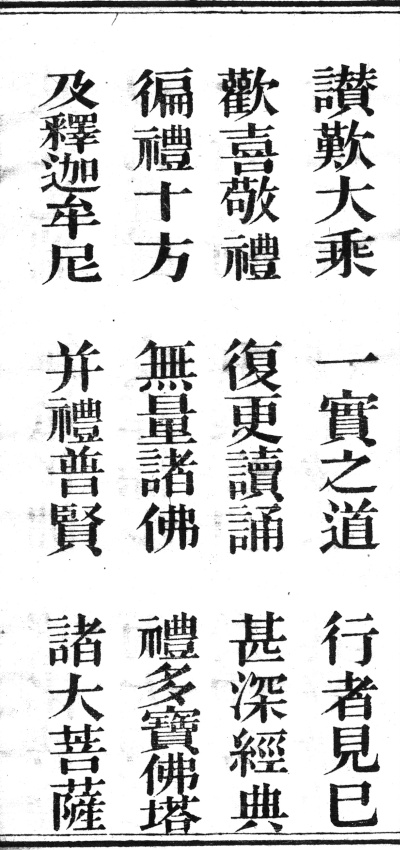 讃歎大乘　一實之道　行者見已
歡喜敬禮　復更讀誦　甚深經典
徧禮十方　無量諸佛　禮多寶佛塔
及釋迦牟尼　并禮普賢　諸大菩薩